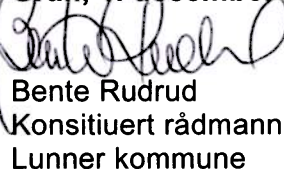 Bente Rudrud
Konsitiuert rådmann
Lunner kommune